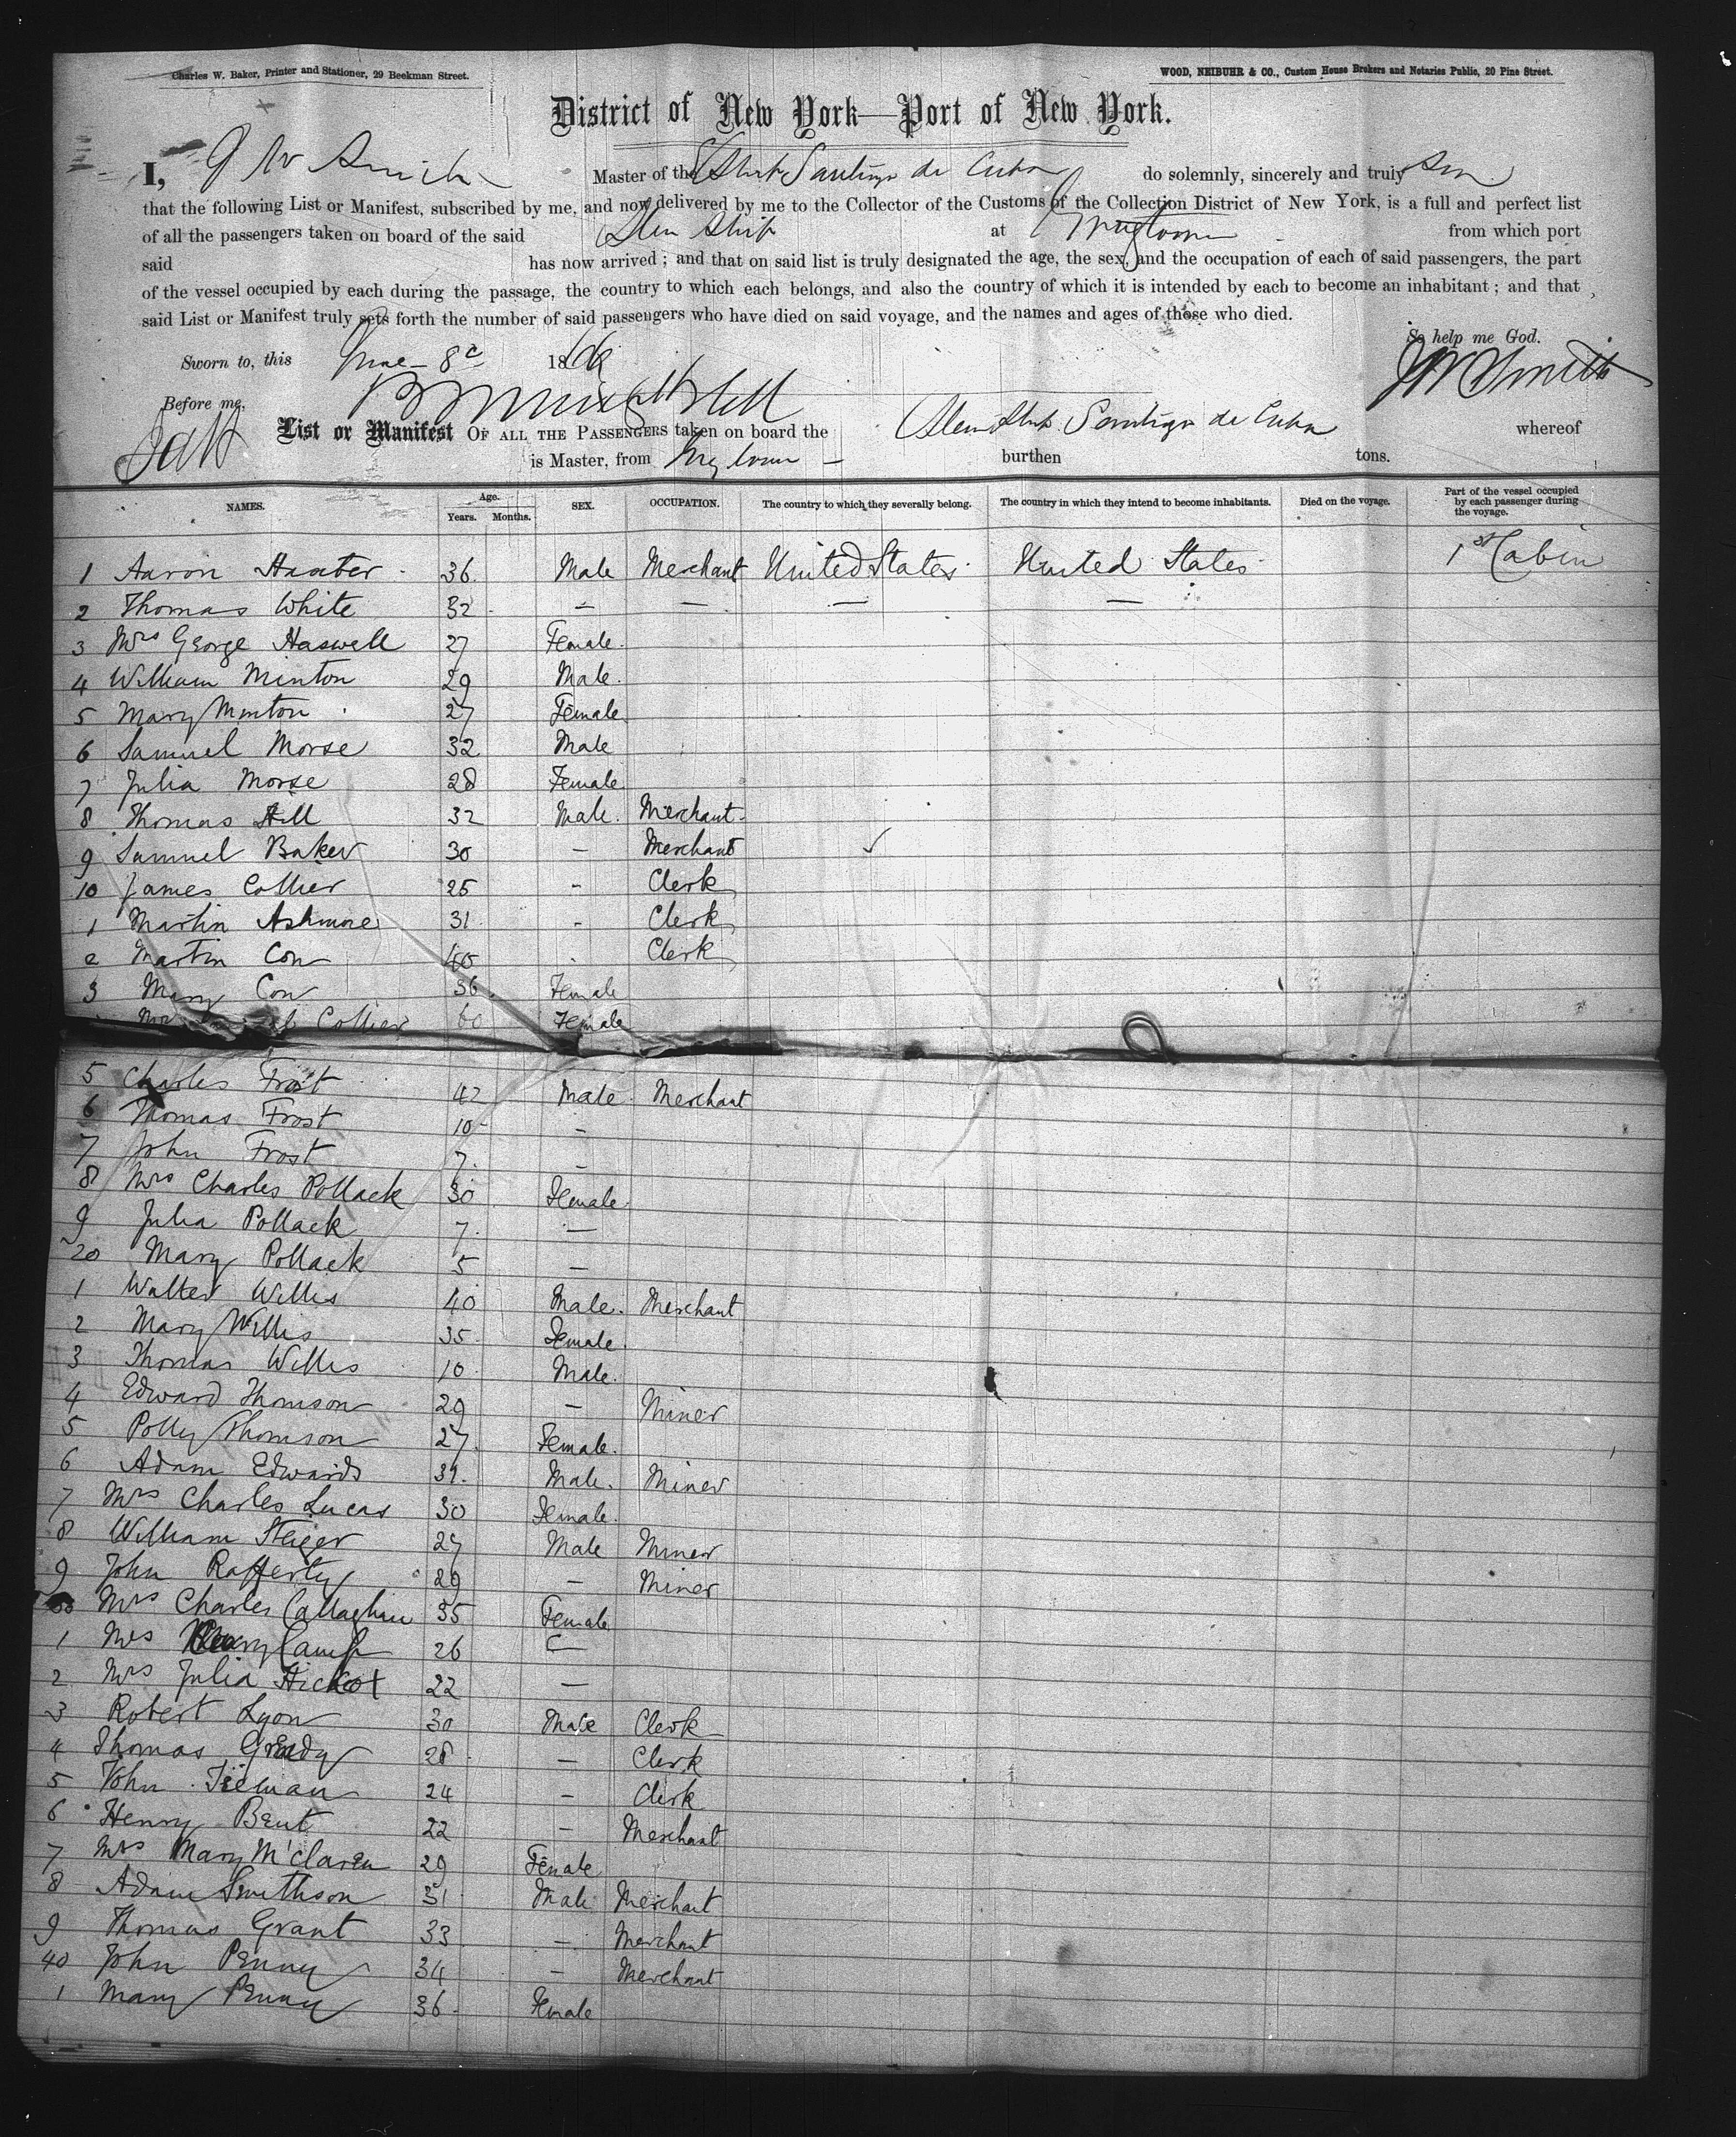 Charles W. Baker, Printer and Stationer, 29 Beekman Street.
WOOD, NEIBUHR & CO., Custom House Brokers and Notaries Public, 20 Pine Street.
District of New York—Port of New York.
I, J W Smith Master of the Santiago de Cuba do solemnly, sincerely and truly
that the following List or Manifest, subscribed by me, and now delivered by me to the Collector of the Customs of the Collection District of New York, is a full and perfect list
of all the passengers taken on board of the said Ship at from which port
said has now arrived; and that on said list is truly designated the age, the sex, and the occupation of each of said passengers, the part
of the vessel occupied by each during the passage, the country to which each belongs, and also the country of which it is intended by each to become an inhabitant; and that
said List or Manifest truly sets forth the number of said passengers who have died on said voyage, and the names and ages of those who died.
So help me God.
Sworn to, this 8 18
J W Smith
Before me,
List or Manifest OF ALL THE PASSENGERS taken on board the Santiago de Cuba whereof
is Master, from burthen tons.
NAMES. Age. Years. Months. SEX. OCCUPATION. The country to which they severally belong. The country in which they intend to become inhabitants. Died on the voyage. Part of the vessel occupied by each passenger during the voyage.
1 Aaron 36 Male Merchant United States United States 1st Cabin
2 Thomas White 32 — — — —
3 Mrs George Haswell 27 Female
4 William Minton 29 Male
5 Mary Minton 27 Female
6 Samuel Morse 32 Male
7 Julia Morse 28 Female
8 Thomas Hill 32 Male Merchant
9 Samuel Baker 30 – Merchant
10 James Collier 25 – Clerk
1 Martin Ashmore 31 – Clerk
2 Martin 40 Clerk
3 Mary 36 Female
Collier 60 Female
5 Charles Frost 42 Male Merchant
6 Thomas Frost 10 –
7 John Frost 7 –
8 Mrs Charles Pollack 30 Female
9 Julia Pollack 7 —
20 Mary Pollack 5 —
1 Walter Willis 40 Male Merchant
2 Mary Willis 35 Female
3 Thomas Willis 10 Male
4 Edward Thomson 29 — Miner
5 Polly Thomson 27 Female
6 Adam Edwards 31 Male Miner
7 Mrs Charles Lucas 30 Female
8 William Steiger 27 Male Miner
9 John Rafferty 29 — Miner
Mrs Charles Callaghan 35 Female
1 Mrs Camp 26 —
2 Mrs Julia Hickot 22 —
3 Robert Lyon 30 Male Clerk
4 Thomas Grady 28 — Clerk
5 John 24 – Clerk
6 Henry Bent 22 – Merchant
7 Mrs Mary McClaren 29 Female
8 Adam Smithson 31 Male Merchant
9 Thomas Grant 33 – Merchant
40 John Penny 34 – Merchant
1 Mary Penny 36 Female